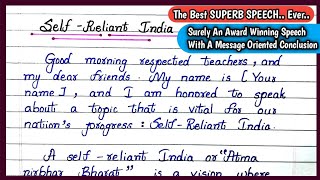 Self-Reliant India
The Best SUPERB SPEECH.. Ever..
Surely An Award Winning Speech
With A Message Oriented Conclusion
Good morning respected teachers, and
my dear friends. My name is [Your
name], and I am honored to speak
about a topic that is vital for our
nation's progress: Self-Reliant India.
A self-reliant India or "Atma
nirbhar Bharat" is a vision where